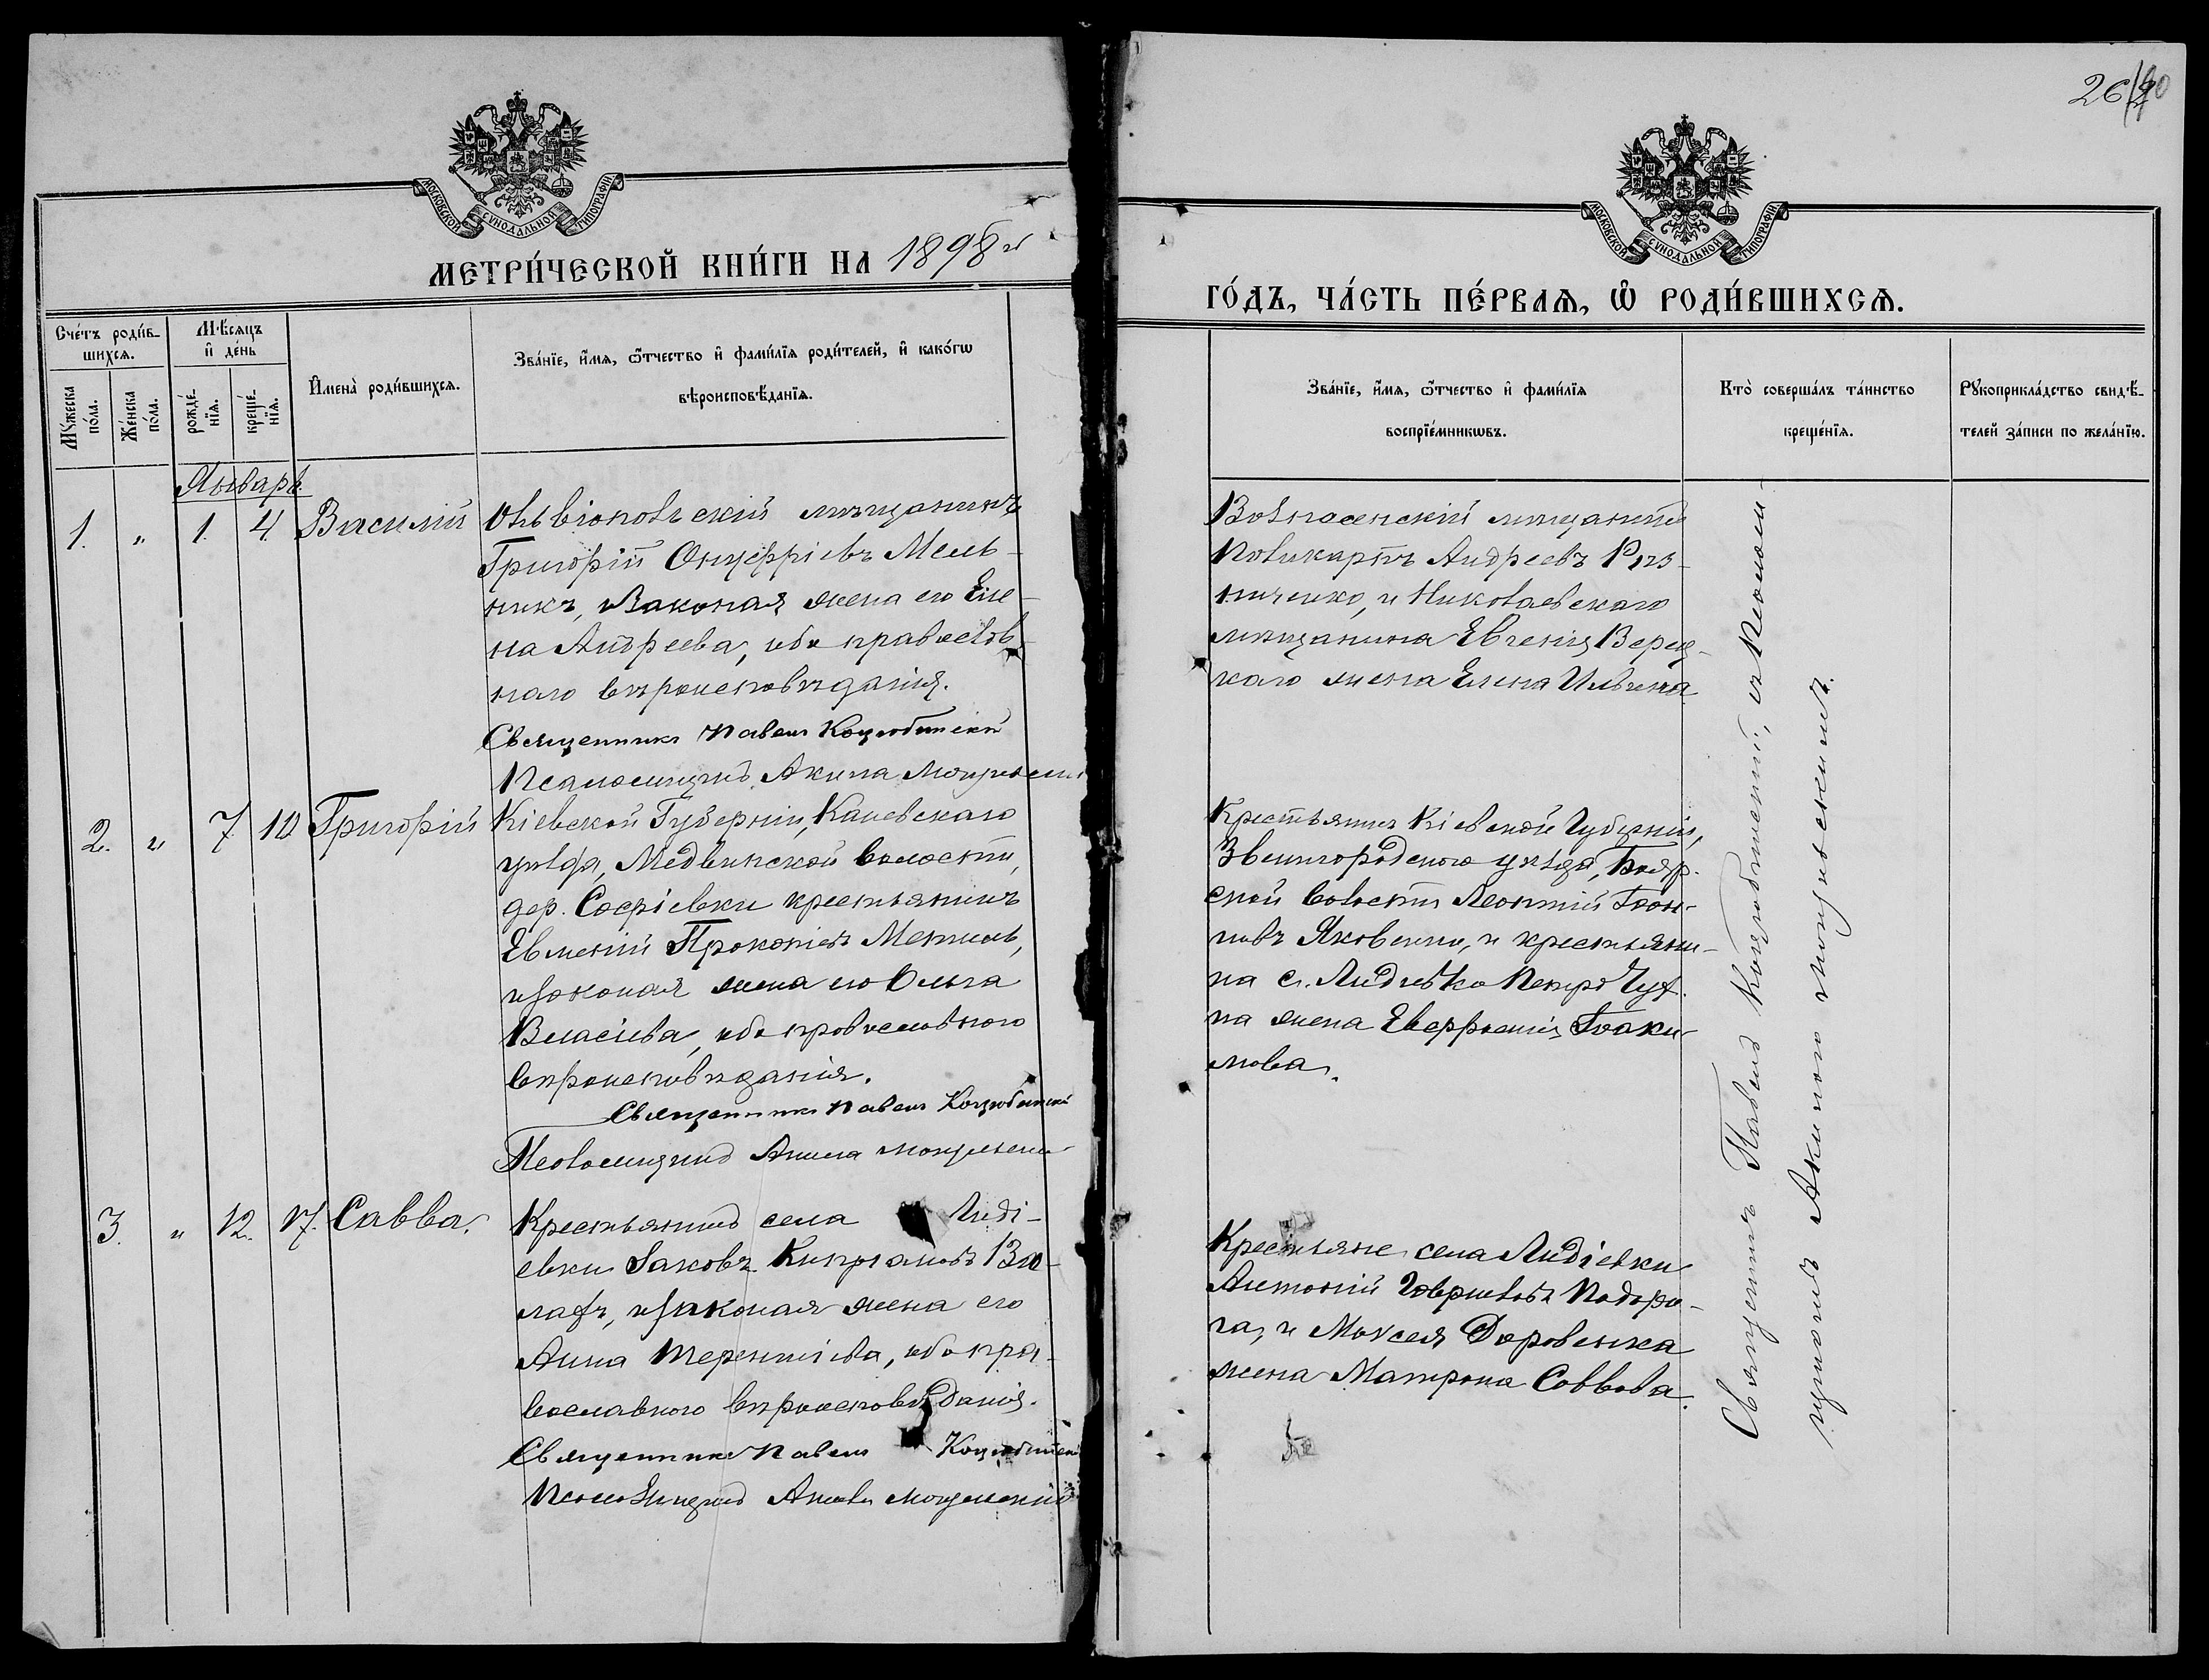 МОСКОВСКОЙ СУНОДАЛЬНОЙ ТИПОГРАФІИ
МЕТРИ́ЧЕСКОЙ КНИ́ГИ НА 1898 г
Сче́тъ роди́в-
шихсѧ.
Мꙋ́жеска
по́ла.
Же́нска
по́ла.
М҃ѣсѧцъ
и҆ де́нь
рожде́-
нїѧ.
креще́-
нїѧ.
И҆мена̀ роди́вшихсѧ.
Зва́нїе, и҆́мѧ, ѻ҆́тчество и҆ фами́лїѧ роди́телей, и҆ како́гѡ
вѣроисповѣ́данїѧ.
Январь.
1. „ 1. 4. Василій
Ольвіопольскій мѣщанинъ
Григорій Онуфріевъ Мель-
никъ, и законая жена его Еле-
на Андреева, оба православ-
наго вѣроисповѣданія.
Священникъ Павелъ Коцюбинскій
Псаломщикъ Акила
2. „ 7. 10 Григорій
Кіевской Губерніи, Каневскаго
уѣзда, Медвинской волости,
дер. Софіевки крестьянинъ
Евменій Прокопіевъ
и законая жена его Ольга
Власіева, оба православного
вѣроисповѣданія.
Священникъ Павелъ Коцюбинскій
Псаломщикъ Акила
3. „ 12. 17. Савва.
Крестьянинъ села Лиді-
евки Іаковъ Кипріановъ
и законая жена его
Анна Терентіева, оба пра-
вославного вѣроисповѣданія.
Священникъ Павелъ Коцюбинскій
Псаломщикъ Акила
МОСКОВСКОЙ СУНОДАЛЬНОЙ ТИПОГРАФІИ
ГО́ДЪ, ЧА́СТЬ ПЕ́РВАѦ, Ѡ҆ РОДИ́ВШИХСѦ.
Зва́нїе, и҆́мѧ, ѻ҆́тчество и҆ фами́лїѧ
воспрїе́мникѡвъ.
Кто̀ соверша́лъ та́инство
креще́нїѧ.
Рꙋкоприкла́дство свидѣ́-
телей за́писи по жела́нїю.
Вознесенскій мѣщанинъ
Поликарпъ Андреевъ Рѣз-
ниченко, и Николаевскаго
мѣщанина Евгенія
жена Елена Ильина
Крестьянинъ Кіевской Губерніи,
Звенигородского уѣзда, Бояр-
ской волости Леонтій
Яковенко, и крестьяни-
на с. Лидіевка Петра
жена Евфросинія Іоаки-
мова.
Крестьяне села Лидіевки
Антоній Гавриловъ Подоро-
га, и Моисея Доровенка
жена Матрона Саввова.
Священникъ Павелъ Коцюбинскій, съ Псалом-
щикомъ Акилою